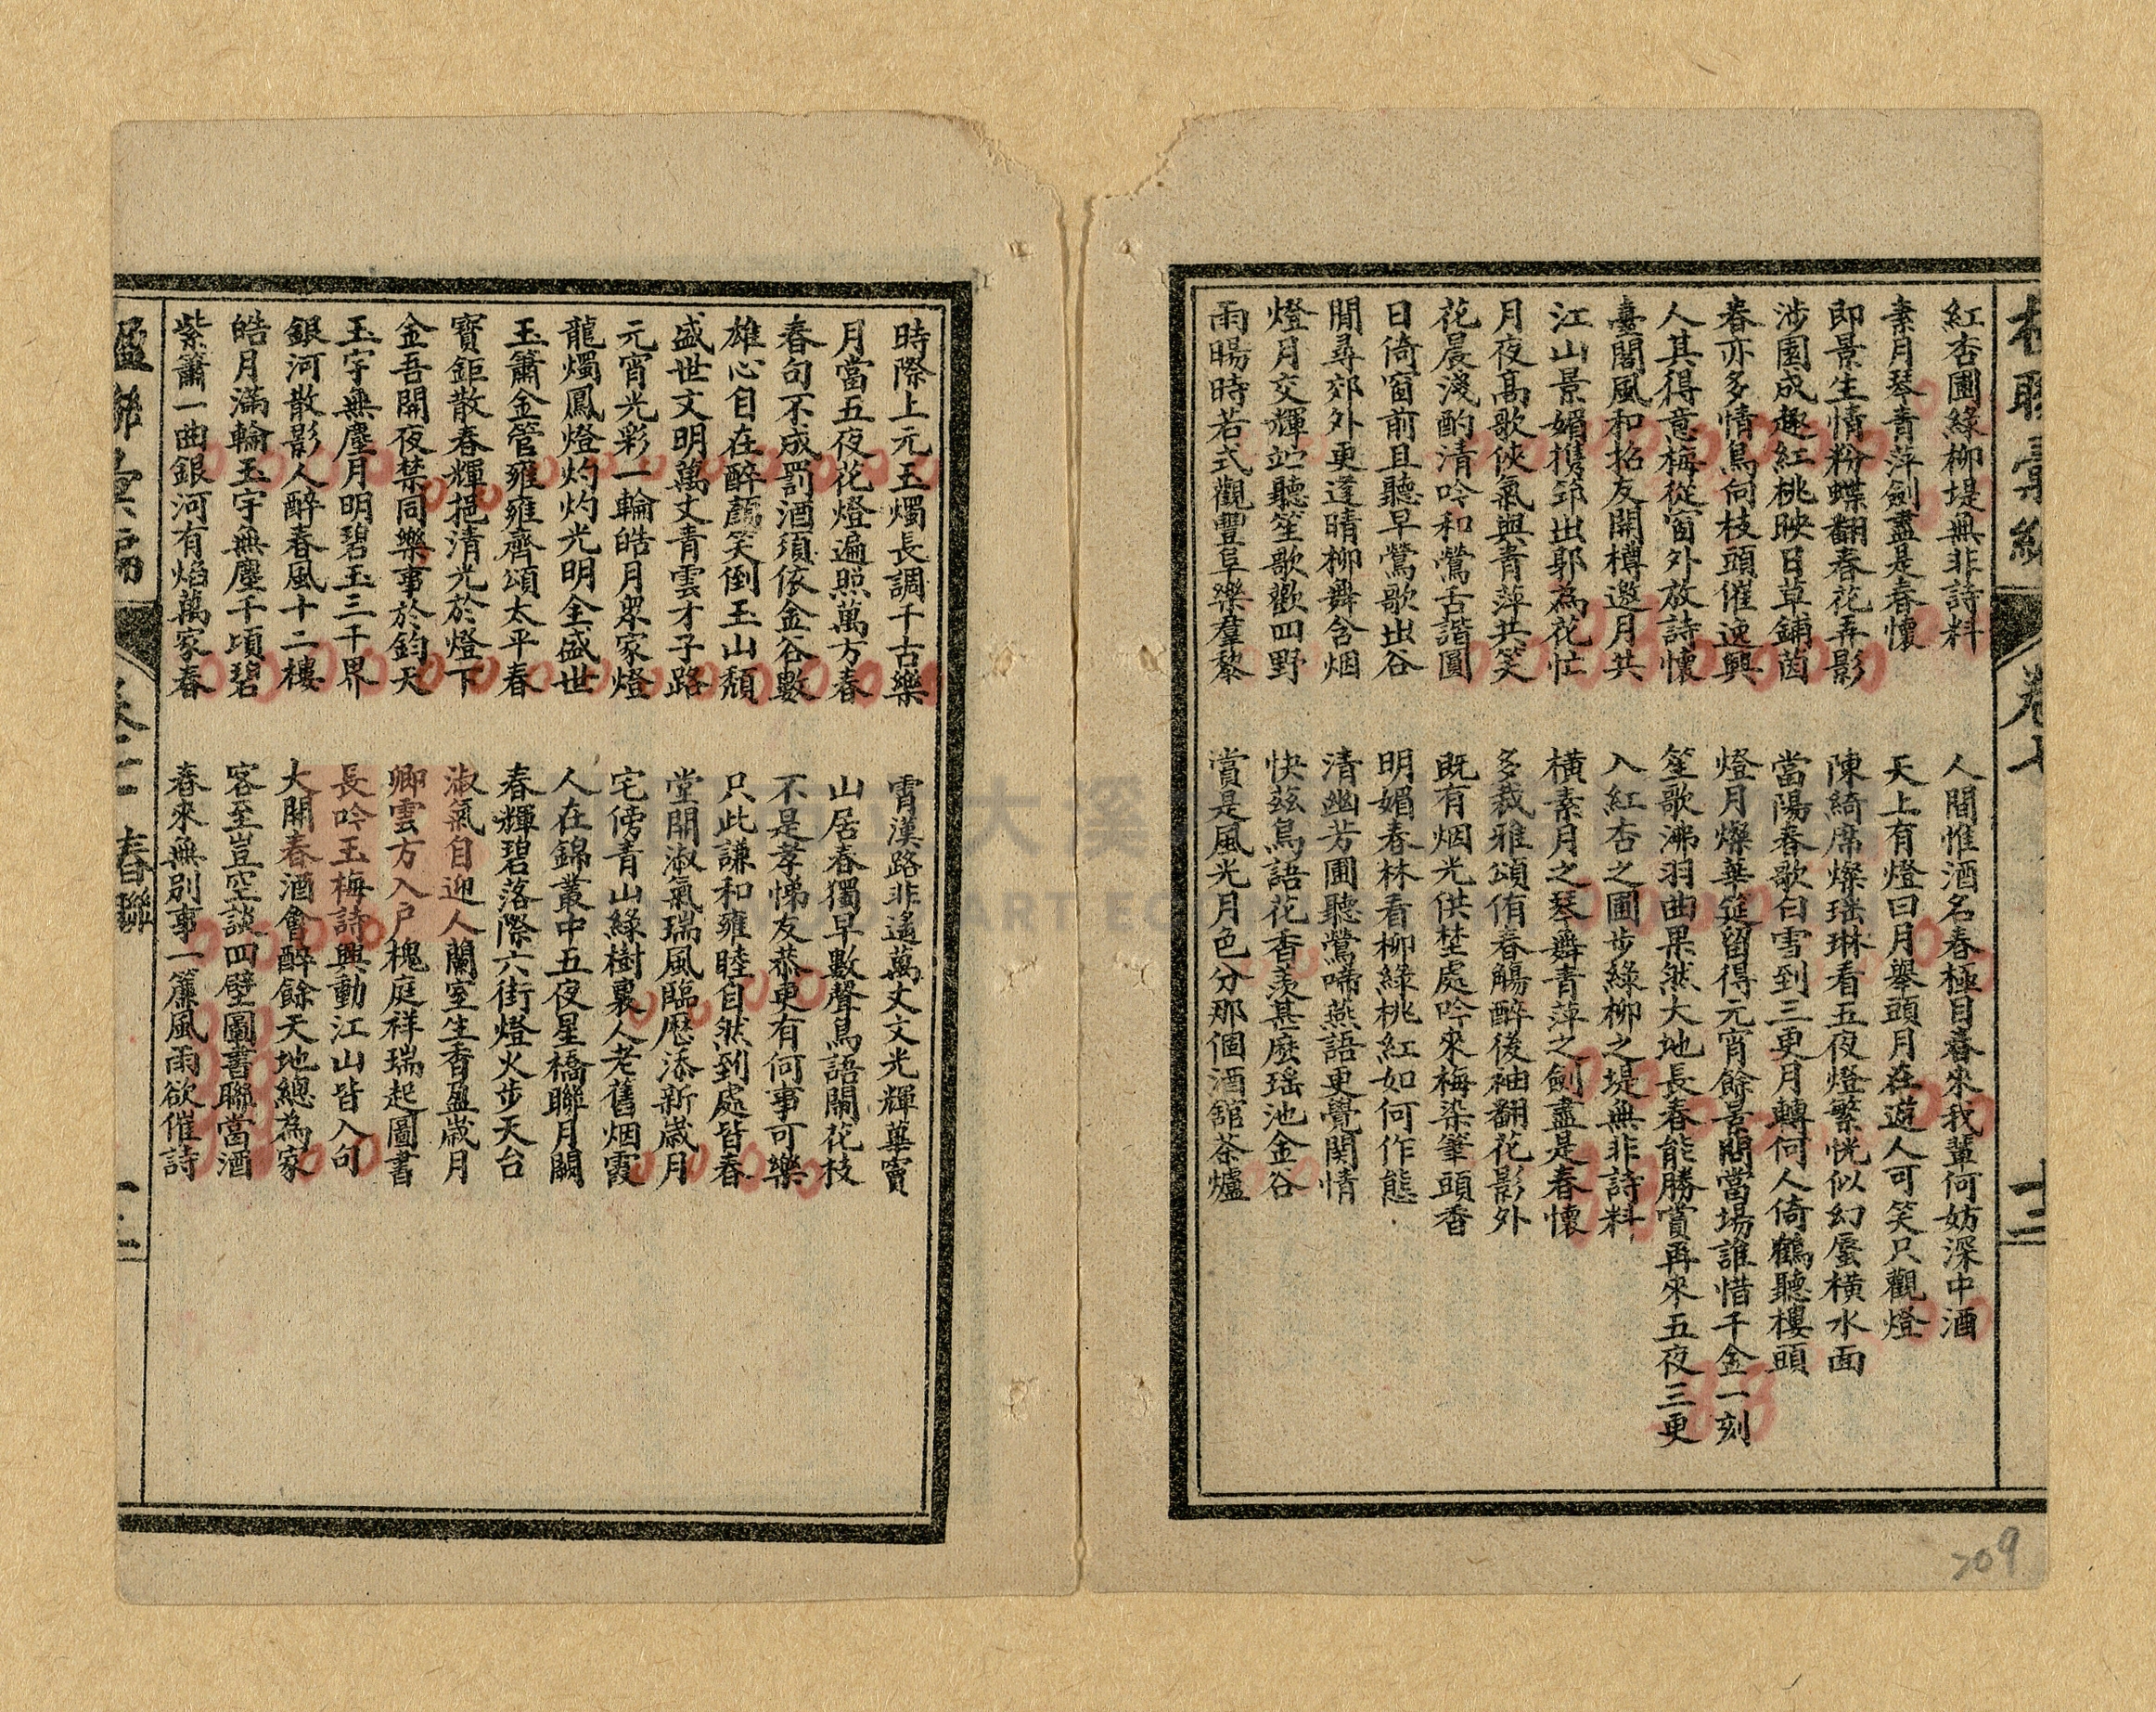 紅杏圃綠柳堤無非詩料
素月琴青萍劍盡是春懷
即景生情粉蝶翻春花弄影
涉園成趣紅桃映日草鋪茵
春亦多情鳥向枝頭催逸興
人其得意梅從窗外放詩懷
臺閣風和招友開樽邀月共
江山景媚携筇出郭為花忙
月夜高歌俠氣與青萍共笑
花晨淺酌清吟和鶯舌諧圓
日倚窗前且聽早鶯歌出谷
閒尋郊外更逢晴柳舞含烟
燈月交輝竚聽笙歌歡四野
雨暘時若式觀豐阜樂羣黎
人間惟酒名春極目春來我輩何妨深中酒
天上有燈曰月舉頭月在遊人可笑只觀燈
陳綺席燦瑤琳看五夜燈繁恍似幻蜃橫水面
當陽春歌白雪到三更月轉何人倚鶴聽樓頭
燈月燦華筵留得元宵餘景鬧當場誰惜千金一刻
笙歌沸羽曲果然大地長春能勝賞再來五夜三更
入紅杏之圃步綠柳之堤無非詩料
橫素月之琴舞青萍之劍盡是春懷
多裁雅頌侑春觴醉後袖翻花影外
既有烟光供埜處吟來梅染筆頭香
明媚春林看柳綠桃紅如何作態
清幽芳圃聽鶯啼燕語更覺関情
快茲鳥語花香羡甚麽瑶池金谷
賞是風光月色分那個酒舘茶爐
卷七
十二
209
時際上元玉燭長調千古樂
月當五夜花燈遍照萬方春
春句不成罰酒須依金谷數
雄心自在醉顏笑倒玉山頹
盛世文明萬丈青雲才子路
元宵光彩一輪皓月衆家燈
龍燭鳳燈灼灼光明全盛世
玉簫金管雍雍齊頌太平春
寶鉅散春輝挹清光於燈下
金吾開夜禁同樂事於鈞天
玉宇無塵月明碧玉三千界
銀河散影人醉春風十二樓
皓月滿輪玉宇無塵千頃碧
紫簫一曲銀河有焰萬家春
霄漢路非遙萬丈文光輝蓽竇
山居春獨早數聲鳥語鬧花枝
不是孝悌友恭更有何事可樂
只此謙和雍睦自然到處皆春
堂開淑氣瑞風臨厯添新歲月
宅傍青山綠樹裏人老舊烟霞
人在錦叢中五夜星橋聯月闕
春輝碧落際六街燈火步天台
淑氣自迎人蘭室生香盈歲月
卿雲方入戶槐庭祥瑞起圖書
長吟玉梅詩興動江山皆入句
大開春酒會醉餘天地總為家
客至豈空談四壁圖書聯當酒
春來無別事一簾風雨欲催詩
春聯